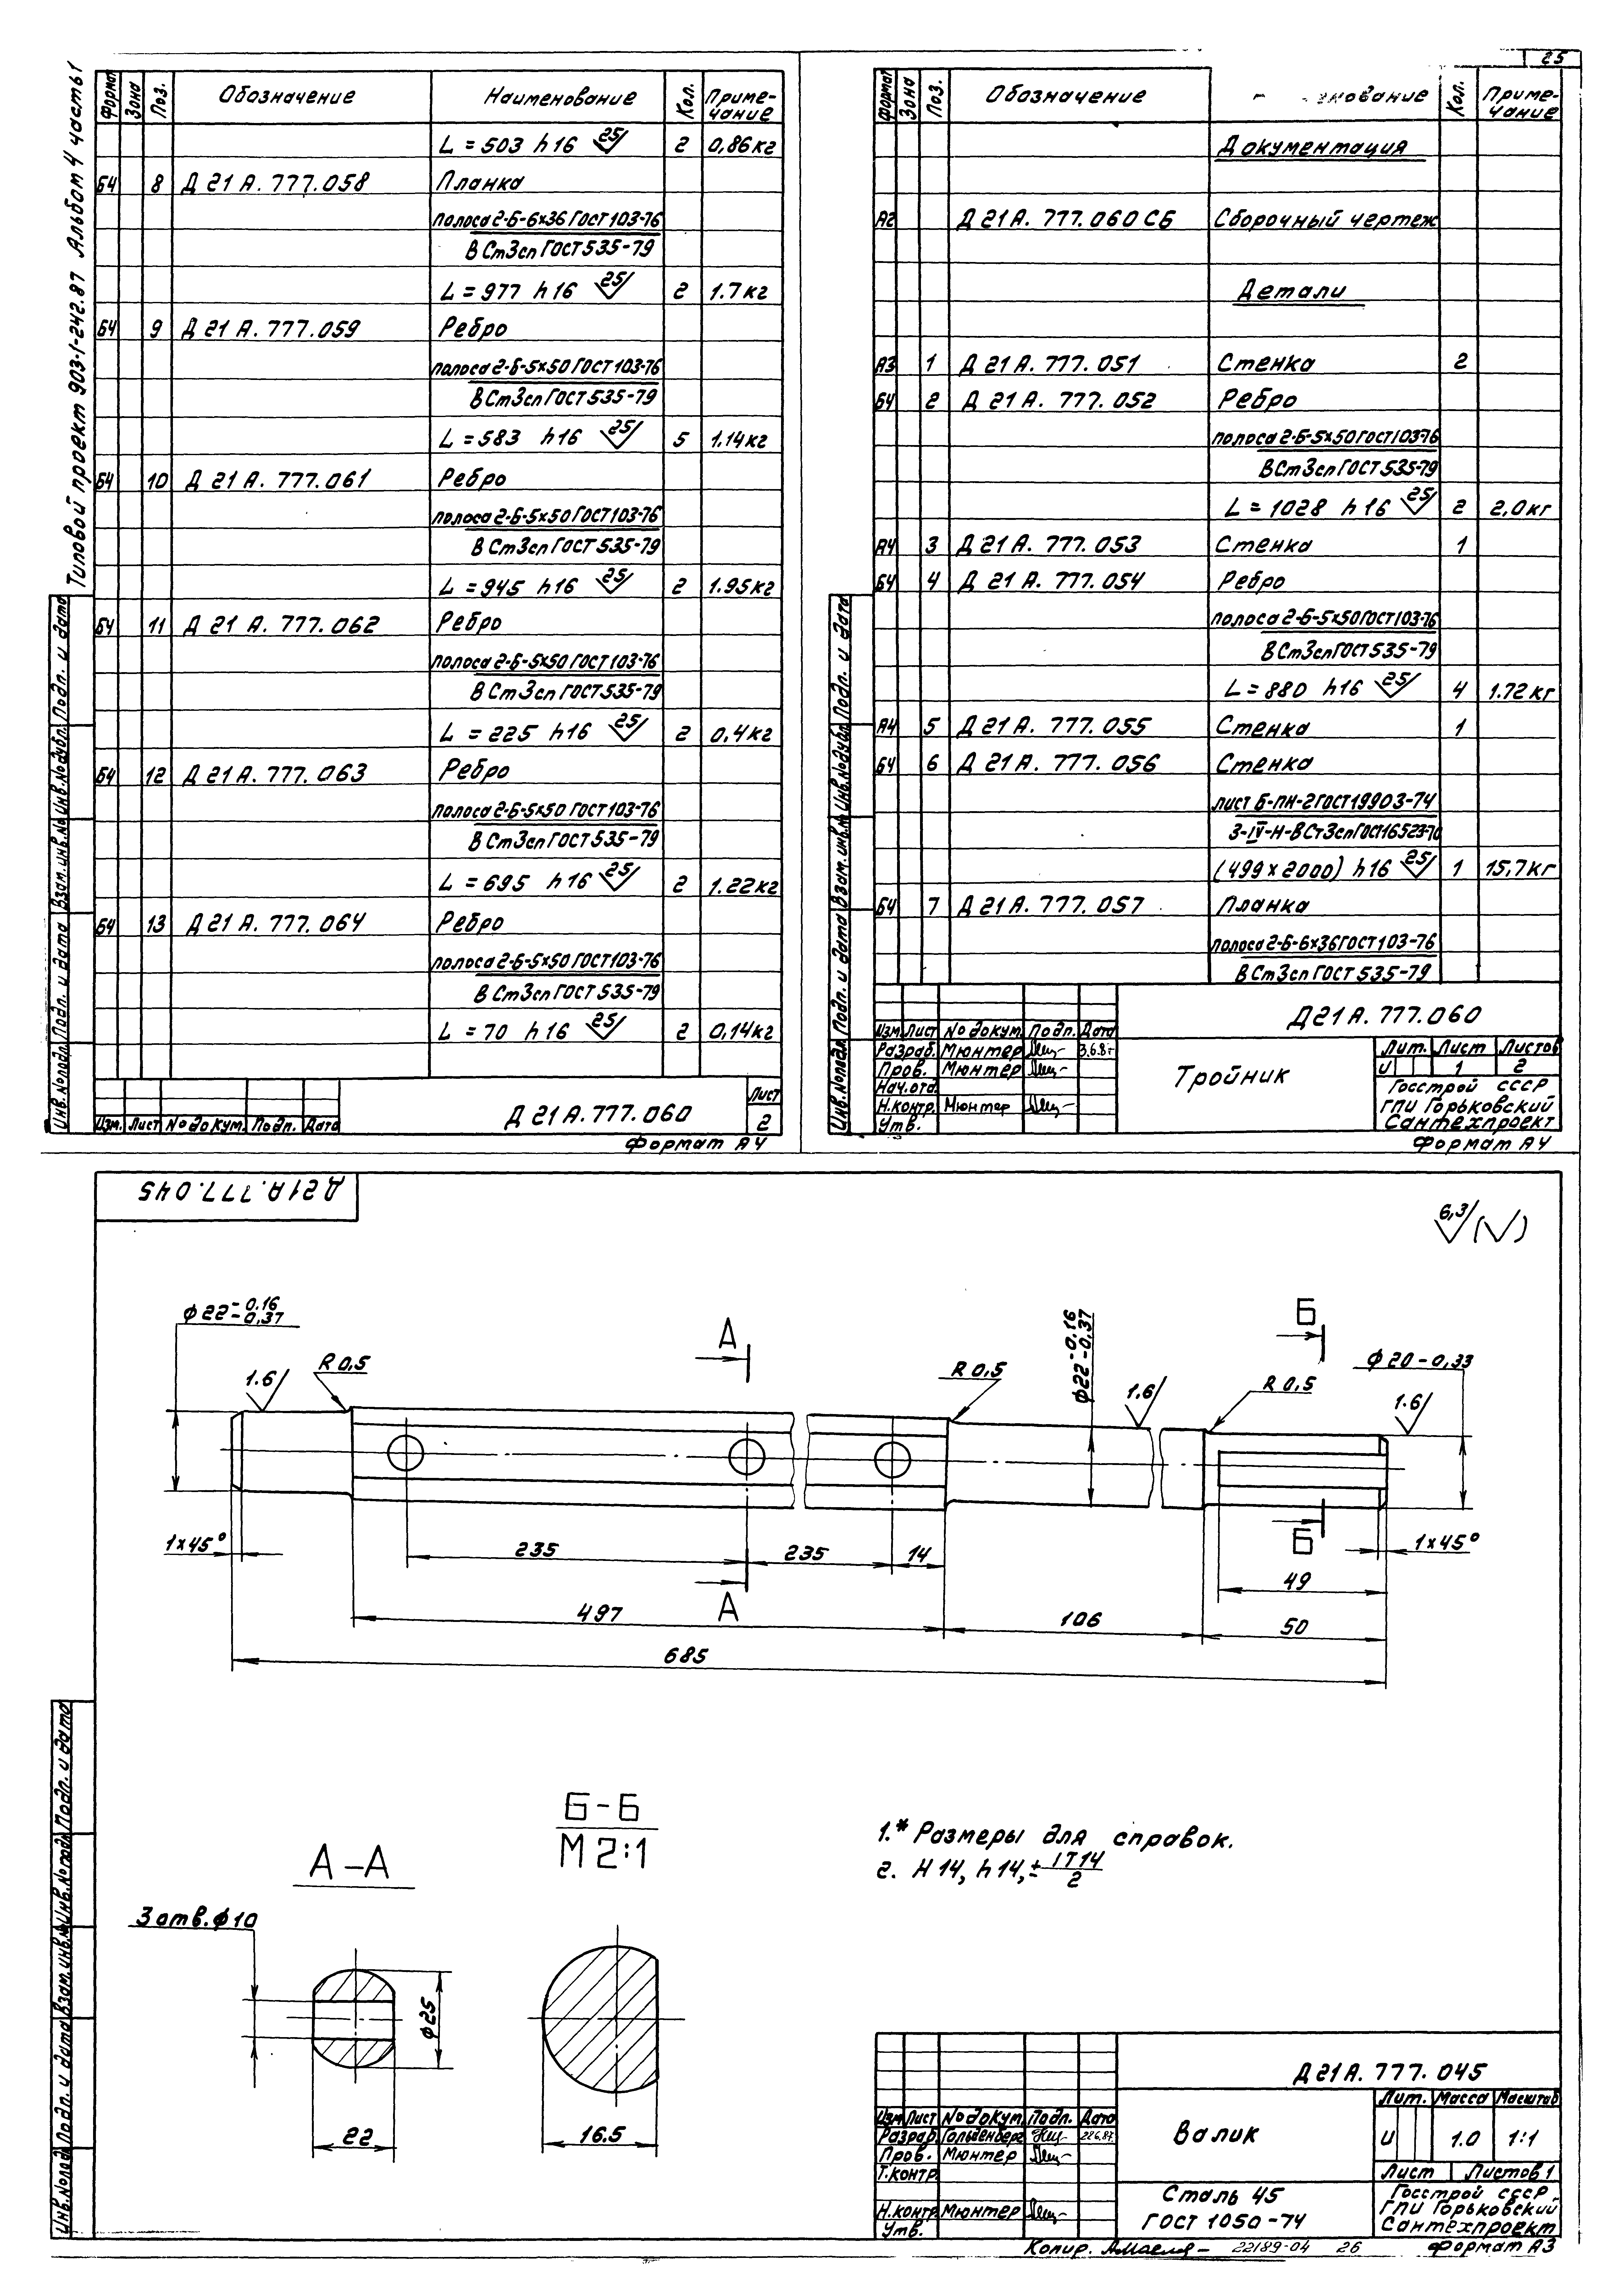 25
Типовой проект 903-1-242.87 Альбом 4 часть 1
Формат Зона Поз. Обозначение Наименование Кол. Приме-
чание
L = 503 h16 25 2 0,86кг
БЧ 8 Д 21 А. 777.058 Планка
полоса 2-Б-6х36 ГОСТ 103-76
В Ст3сп ГОСТ 535-79
L = 977 h16 25 2 1.7кг
БЧ 9 Д 21 А. 777.059 Ребро
полоса 2-Б-5х50 ГОСТ 103-76
В Ст3сп ГОСТ 535-79
L = 583 h16 25 5 1.14кг
БЧ 10 Д 21 А. 777.061 Ребро
полоса 2-Б-5х50 ГОСТ 103-76
В Ст3сп ГОСТ 535-79
L = 945 h16 25 2 1.95кг
БЧ 11 Д 21 А. 777.062 Ребро
полоса 2-Б-5х50 ГОСТ 103-76
В Ст3сп ГОСТ 535-79
L = 225 h16 25 2 0,4кг
БЧ 12 Д 21 А. 777.063 Ребро
полоса 2-Б-5х50 ГОСТ 103-76
В Ст3сп ГОСТ 535-79
L = 695 h16 25 2 1.22кг
БЧ 13 Д 21 А. 777.064 Ребро
полоса 2-Б-5х50 ГОСТ 103-76
В Ст3сп ГОСТ 535-79
L = 70 h16 25 2 0,14кг
Изм. Лист № докум. Подп. Дата
Д 21 А. 777.060
Лист
2
Формат А4
Инв.№подл. Подп. и дата Взам.инв.№ Инв.№дубл. Подп. и дата
Формат Зона Поз. Обозначение нование Кол. Приме-
чание
Документация
А2 Д 21 А. 777.060 СБ Сборочный чертеж
Детали
А3 1 Д 21 А. 777.051 Стенка 2
БЧ 2 Д 21 А. 777.052 Ребро
полоса 2-Б-5х50 ГОСТ 103-76
В Ст3сп ГОСТ 535-79
L = 1028 h16 25 2 2,0кг
А4 3 Д 21 А. 777.053 Стенка 1
БЧ 4 Д 21 А. 777.054 Ребро
полоса 2-Б-5х50 ГОСТ 103-76
В Ст3сп ГОСТ 535-79
L = 880 h16 25 4 1.72кг
А4 5 Д 21 А. 777.055 Стенка 1
БЧ 6 Д 21 А. 777.056 Стенка
лист Б-ПН-2 ГОСТ 19903-74
3-IV-Н-В Ст3сп ГОСТ 16523-70
(499 х 2000) h16 25 1 15,7кг
БЧ 7 Д 21 А. 777.057 Планка
полоса 2-Б-6х36 ГОСТ 103-76
В Ст3сп ГОСТ 535-79
Д 21 А. 777.060
Изм. Лист № докум. Подп. Дата
Разраб. Мюнтер
Пров. Мюнтер
Нач.отд.
Н.контр. Мюнтер
Утв.
Тройник
Лит. Лист Листов
И 1 2
Госстрой СССР
ГПИ Горьковский
Сантехпроект
Формат А4
Инв.№подл. Подп. и дата Взам.инв.№ Инв.№дубл. Подп. и дата
Д 21 А. 777.045
6,3 (√)
ф 22 -0,16
-0,37
1.6
R 0,5
А
R 0,5
ф 22 -0,16
-0,37
1.6
Б
R 0,5
ф 20 -0,33
1.6
1х45°
235
235
14
А
Б
1х45°
49
497
106
50
685
А-А
3 отв. ф 10
ф 25
22
Б-Б
М 2:1
16.5
1.* Размеры для справок.
2. Н14, h14, ± IT14
2
Инв.№подл. Подп. и дата Взам.инв.№ Инв.№подл. Подп. и дата
Д 21 А. 777.045
Изм. Лист № докум. Подп. Дата
Разраб. Гольденберг
Пров. Мюнтер
Т.контр.
Н.контр. Мюнтер
Утв.
Валик
Лит. Масса Масштаб
И 1.0 1:1
Лист Листов 1
Сталь 45
ГОСТ 1050-74
Госстрой СССР
ГПИ Горьковский
Сантехпроект
Копир. 22189-04 26 Формат А3